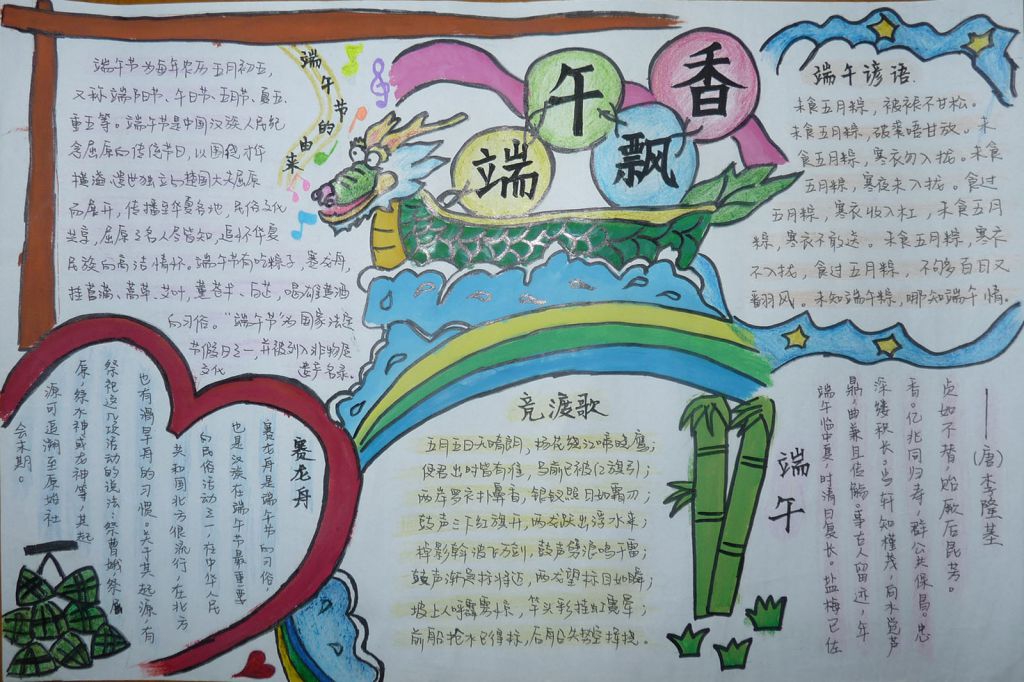 端午飘香
端午节的由来
端午节为每年农历五月初五,
又称端阳节、午日节、五月节、夏五、
重五等。端午节是中国汉族人民纪
念屈原的传统节日,以围绕才华
横溢、遗世独立的楚国大夫屈原
而展开,传播至华夏各地,民俗文化
共享,屈原之名人尽皆知,追怀华夏
民族的高洁情怀。端午节有吃粽子,赛龙舟,
挂菖蒲、蒿草、艾叶,薰苍术、白芷,喝雄黄酒
的习俗。“端午节”为国家法定
节假日之一,并被列入非物质
文化遗产名录。
端午谚语
未食五月粽,被褥不甘松。
未食五月粽,破裘唔甘放。未
食五月粽,寒衣勿入拢。未食
五月粽,寒夜未入拢。食过
五月粽,寒衣收入杠,未食五月
粽,寒衣不敢送。未食五月粽,寒衣
不入拢,食过五月粽,不够百日又
翻风。未知端午粽,哪知端午情。
赛龙舟
赛龙舟是端午节的习俗,
也是汉族在端午节最重要
的民俗活动之一,在中华人民
共和国北方很流行,在北方
也有滑旱舟的习惯。关于其起源,有
祭祀这几项活动的说法,祭曹娥,祭屈
原,祭水神或龙神等,其起
源可追溯至原始社
会末期。
竞渡歌
五月五日天晴朗,杨花绕江啼晓鹰;
使君出时皆有准,马前已被红旗引;
两岸罗衣扑鼻香,银钗照日如霜刃;
鼓声三下红旗开,两龙跃出浮水来;
棹影斡波飞万剑,鼓声劈浪鸣千雷;
鼓声渐急标将近,两龙望标目如瞬;
坡上人呼霹雳惊,竿头彩挂虹霓晕;
前船抢水已得标,后船失势空挥挠。
端午
——(唐)李隆基
端午临中夏,时清日复长。盐梅已佐
鼎,曲糵且传觞。事古人留迹,年
深缕积长。当轩知槿茂,向水觉芦
香。亿兆同归寿,群公共保昌。忠
贞如不替,贻厥后昆芳。